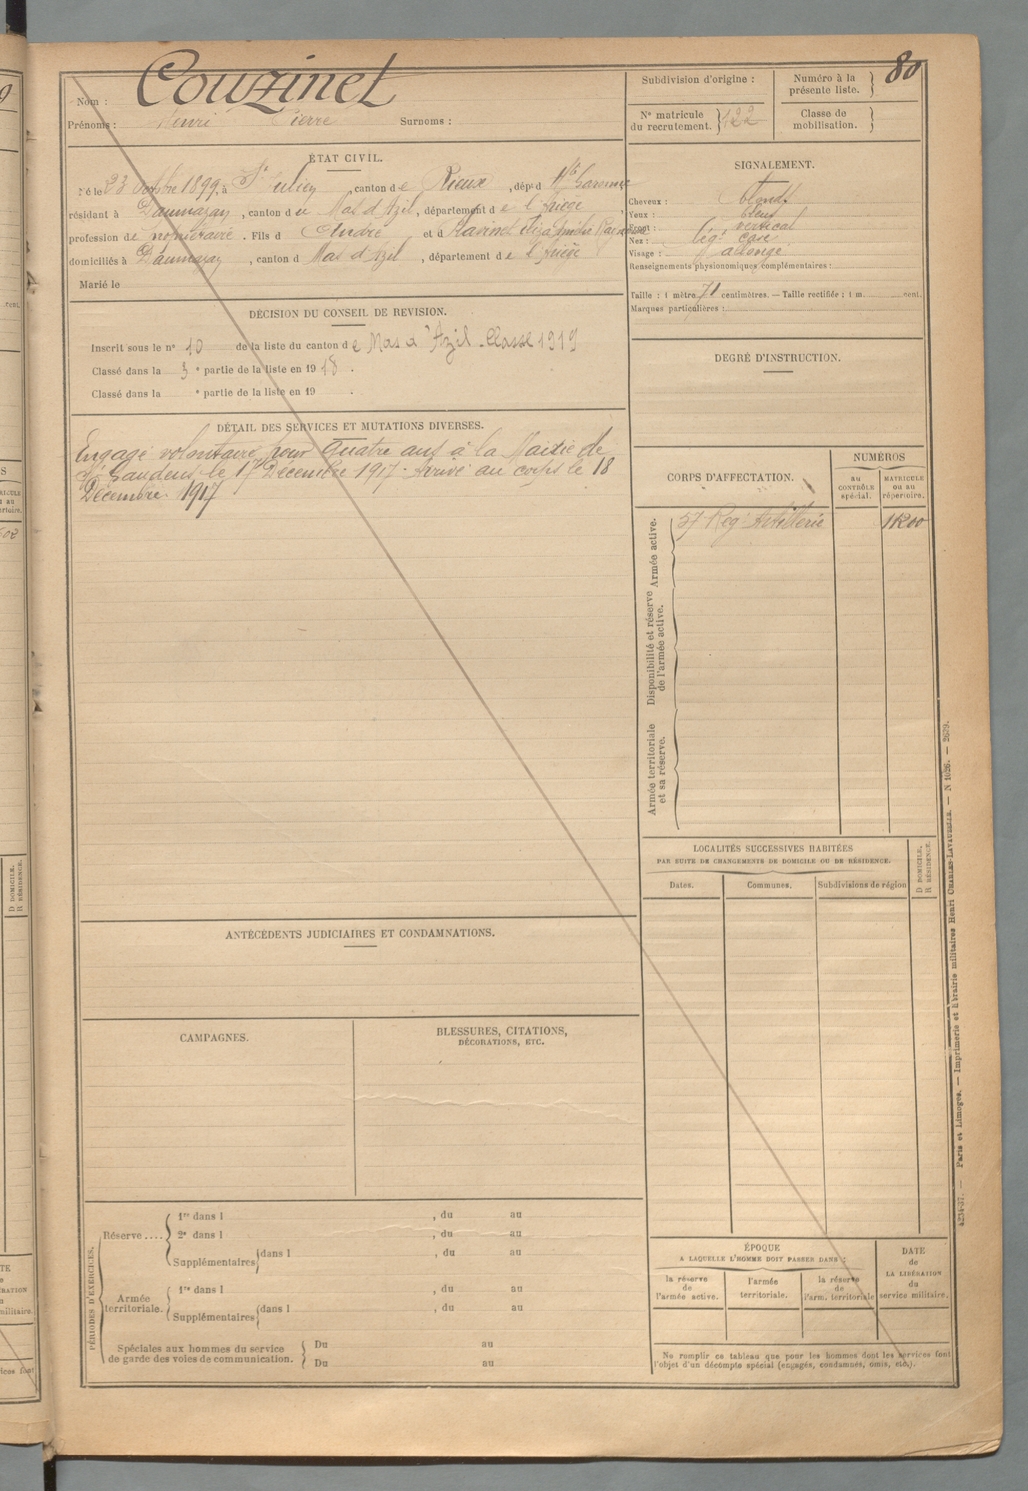 Nom : Couzinet
Prénoms : Henri Pierre Surnoms :
Subdivision d'origine :
Numéro à la présente liste. 80
N° matricule du recrutement. 122
Classe de mobilisation.
ÉTAT CIVIL.
Né le 23 Octobre 1899, à St Julien, canton de Rieux, dépt d Hte Garonne
résidant à Daumazan, canton du Mas d'Azil, département de l'Ariège,
profession de propriétaire. Fils d André et d
domiciliés à Daumazan, canton d Mas d'Azil, département de l'Ariège
Marié le
SIGNALEMENT.
Cheveux : blonds
Yeux : bleus
Front : vertical
Nez :
Visage : allongé
Renseignements physionomiques complémentaires :
Taille : 1 mètre 71 centimètres. — Taille rectifiée : 1 m. cent.
Marques particulières :
DÉCISION DU CONSEIL DE REVISION.
Inscrit sous le n° 10 de la liste du canton de Mas d'Azil - Classe 1919
Classé dans la 3e partie de la liste en 1918.
Classé dans la e partie de la liste en 19 .
DEGRÉ D'INSTRUCTION.
DÉTAIL DES SERVICES ET MUTATIONS DIVERSES.
Engagé volontaire pour quatre ans à la Mairie de
St Gaudens le 17 Décembre 1917 - Arrivé au corps le 18
Décembre 1917
CORPS D'AFFECTATION.
NUMÉROS
au CONTRÔLE spécial.
MATRICULE ou au répertoire.
Armée active.
57 Reg Artillerie 1200
Disponibilité et réserve de l'armée active.
Armée territoriale et sa réserve.
LOCALITÉS SUCCESSIVES HABITÉES
PAR SUITE DE CHANGEMENTS DE DOMICILE OU DE RÉSIDENCE.
Dates. Communes. Subdivisions de région
D DOMICILE.
R RÉSIDENCE.
ANTÉCÉDENTS JUDICIAIRES ET CONDAMNATIONS.
CAMPAGNES.
BLESSURES, CITATIONS,
DÉCORATIONS, ETC.
PÉRIODES D'EXERCICES.
Réserve ....
1re dans l , du au
2e dans l , du au
Supplémentaires dans l , du au
Armée territoriale.
1re dans l , du au
Supplémentaires dans l , du au
Spéciales aux hommes du service
de garde des voies de communication.
Du au
Du au
ÉPOQUE
A LAQUELLE L'HOMME DOIT PASSER DANS :
la réserve de l'armée active.
l'armée territoriale.
la réserve de l'arm. territoriale
DATE de LA LIBÉRATION du service militaire.
Ne remplir ce tableau que pour les hommes dont les services font
l'objet d'un décompte spécial (engagés, condamnés, omis, etc.).
4234-37. — Paris et Limoges. — Imprimerie et librairie militaires Henri CHARLES-LAVAUZELLE. — N 1026. — 2679.